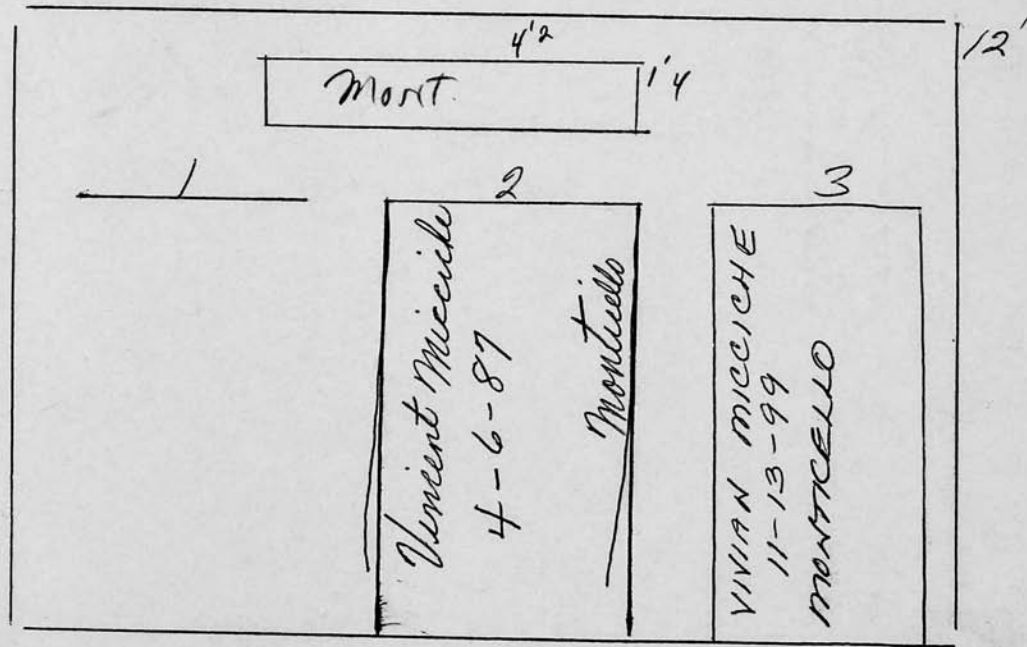 12'
4'2
Mont.
1'4
1
2
3
Vincent Micciche
4-6-87
Monticello
VIVIAN MICCICHE
11-13-99
MONTICELLO